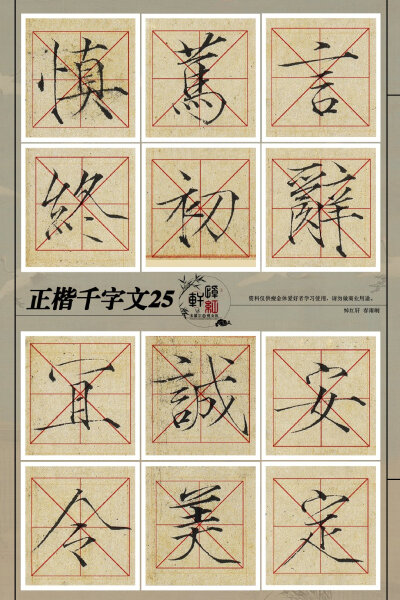 言辭安定
篤初誠美
慎終宜令
正楷千字文25
资料仅供瘦金体爱好者学习使用，请勿做商业用途。